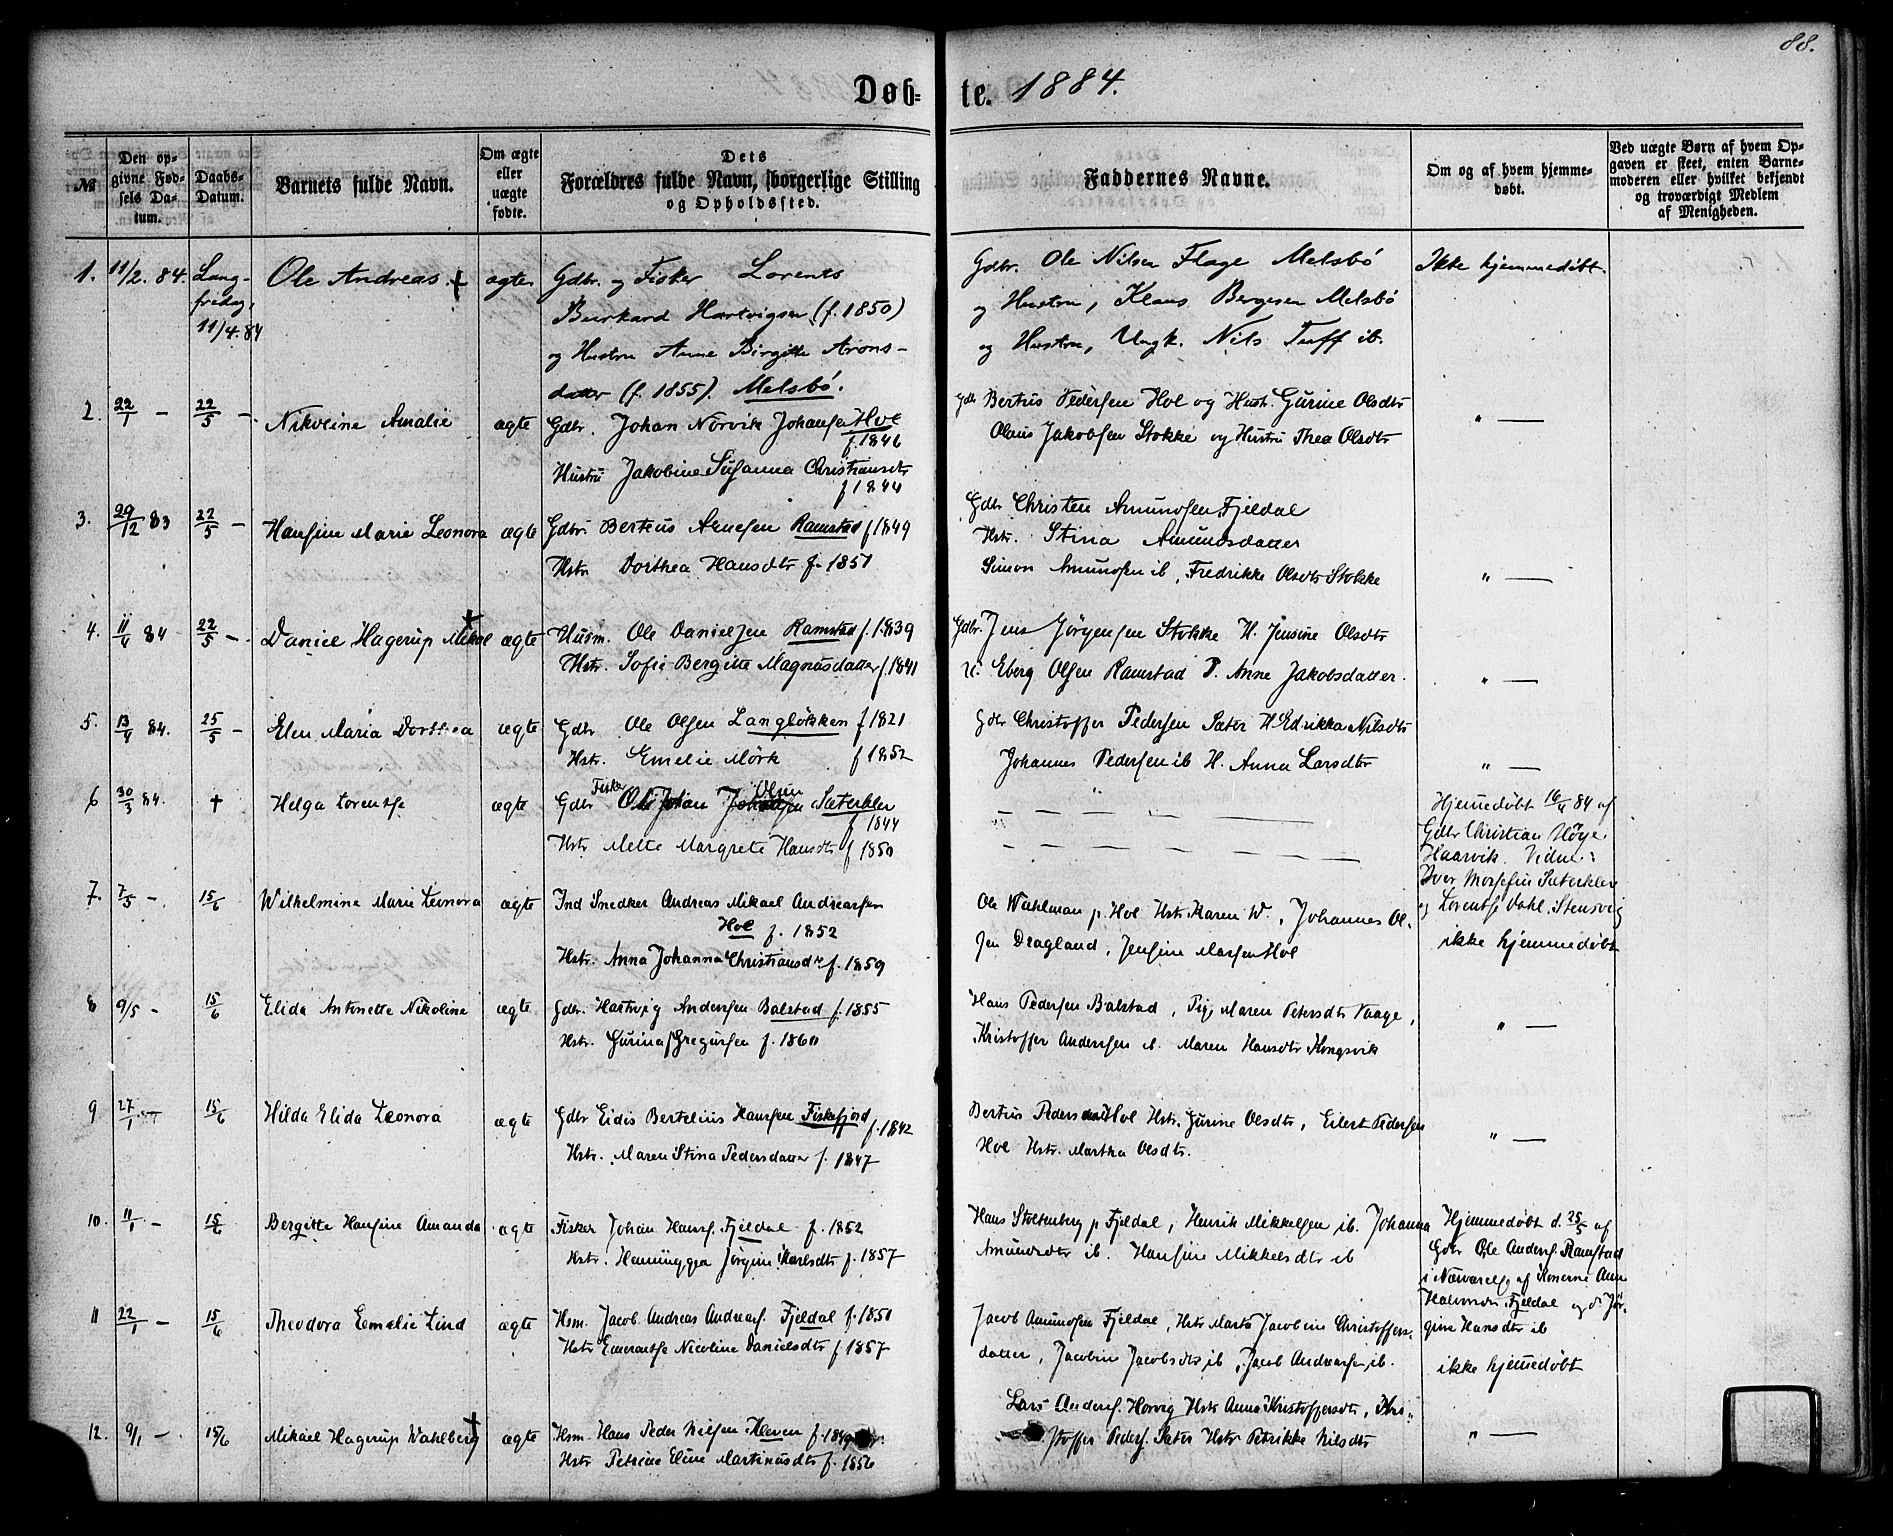 88.
Døb= te. 1884.
№
Den op-
givne Fød-
sels Da-
tum.
Daabs-
Datum.
Barnets fulde Navn.
Om ægte
eller
uægte
fødte.
Dets
Forældres fulde Navn, borgerlige Stilling
og Opholdssted.
Faddernes Navne.
Om og af hvem hjemme-
døbt.
Ved uægte Børn af hvem Op-
gaven er skeet, enten Barne-
moderen eller hvilket bekjendt
og troværdigt Medlem
af Menigheden.
1. 11/2. 84. Lang-
fredag,
11/4. 84
Ole Andreas. +
ægte
Gdbr. og Fisker Lorents
Burkard Hartvigsen (f. 1850)
og Hustru Anne Birgitte Arons-
datter (f. 1855). Melsbö.
Gdbr. Ole Nilsen Flage Melsbö
og Hustru, Klaus Bergesen Melsbö
og Hustru, Ungk. Nils Tuff ib.
Ikke hjemmedøbt.
2. 22/1 — 22/5 — Nikoline Amalie ægte
Gdbr. Johan Norvik Johansen Hol
f. 1846
Hustru Jakobine Susanna Christiansdtr
f 1844
Gdb Bertus Pedersen Hol og Hust. Gurine Olsdtr
Olaus Jakobsen Stokke og Hustru Thea Olsdtr
" —
3. 29/12 83 22/5 — Hansine Marie Leonora ægte
Gdbr Berteus Arnesen Ramstad f 1849
Hstr Dorthea Hansdtr f. 1851
Gdbr Christen Amundsen Fjeldal
Hstr. Stina Amundsdatter
Simon Amundsen ib, Fredrikke Olsdtr Stokke
" —
4. 11/4 84 22/5 — Daniel Hagerup Mikal + ægte
Husm. Ole Danielsen Ramstad f. 1839
Hstr. Sofie Bergitte Magnusdatter f. 1841
Gdbr. Jens Jørgensen Stokke H. Jensine Olsdtr
U. Eberg Olsen Ramstad P. Anne Jakobsdatter.
" —
5. 13/4 84. 25/5 — Elen Maria Dorthea ægte
Gdbr Ole Olsen Langløkken f 1821
Hstr. Emelie Mörk f 1852
Gdbr Christoffer Pedersen Sæter H Edrikka Nilsdtr
Johannes Pedersen ib H. Anna Larsdtr
" —
6 30/3 84. + Helga Lorentse ægte
Fisker Olsen
Gdbr Ole Johan Johansen Sæterkler
f 1844
Hstr Mette Margrete Hansdtr f 1850
Hjemmedøbt 16/4 84 af
Gdbr Christian Höye
Haarvik. Vidne:
Iver Mossesen Sæterkler
og Lorentse Dahl, Stensvig
7. 7/5 — 15/6 Wilhelmine Marie Leonora ægte
Ind Snedker Andreas Mikael Andreassen
Hol f. 1852
Hstr. Anna Johanna Christiansdtr f. 1859
Ole Wahlman p. Hol Hstr. Karen W., Johannes Ol-
sen Dragland, Jensine Marsen Hol
ikke hjemmedøbt
8 9/5 — 15/6 Elida Antonette Nikoline ægte
Gdbr. Hartvig Andersen Balstad f. 1855
Hstr. Gurina Gregersen f. 1860
Hans Pedersen Balstad, Pig. Maren Petersdtr Vaage,
Kristoffer Andersen ib. Maren Hansdtr Kongsvik
" —
9 27/1 — 15/6 Hilda Elida Leonora ægte
Gdbr Eidis Bertelius Hansen Fiskefjord
f. 1842
Hstr. Maren Stina Pedersdatter f. 1847
Bertus Pedersen Hol Hstr. Gurine Olsdtr, Eilert Pedersen
Hol Hstr. Martha Olsdtr.
" —
10. 11/1 — 15/6 Bergitte Hansine Amanda ægte
Fisker Johan Hans. Fjeldal f. 1852
Hstr. Henninggea Jörgine Karlsdtr f. 1857
Hans Stoltenberg p Fjeldal, Henrik Mikkelsen ib. Johanna
Amundsdtr ib. Hansine Mikkelsdtr ib
Hjemmedøbt d. 25/5 af
Gdbr Ole Anders. Ramstad
i Nærværelse af Konerne Ane
Fjeldal og Jör-
gine Hansdtr ib
11 22/1 — 15/6 Theodora Emelie Lind ægte
Hsm. Jacob Andreas Andreas. Fjeldal f. 1850
Hstr Emerentse Nicoline Danielsdtr f. 1857
Jacob Amundsen Fjeldal, Hstr Marta Jacobine Christoffers-
datter, Jacobine Jacobsdtr ib, Jacob Andreassen ib.
ikke hjemmedøbt
12. 9/1 — 15/6 Mikael Hagerup Wahlberg + ægte
Hsm. Hans Peder Nilsen Kleven f. 1849
Hstr Petrine Eline Martinusdtr f. 1856
Lars Anders. Horvig Hstr Anna Kristoffersdtr, Kri-
stoffer Peders. Sæter Hstr Petrikke Nilsdtr
" —